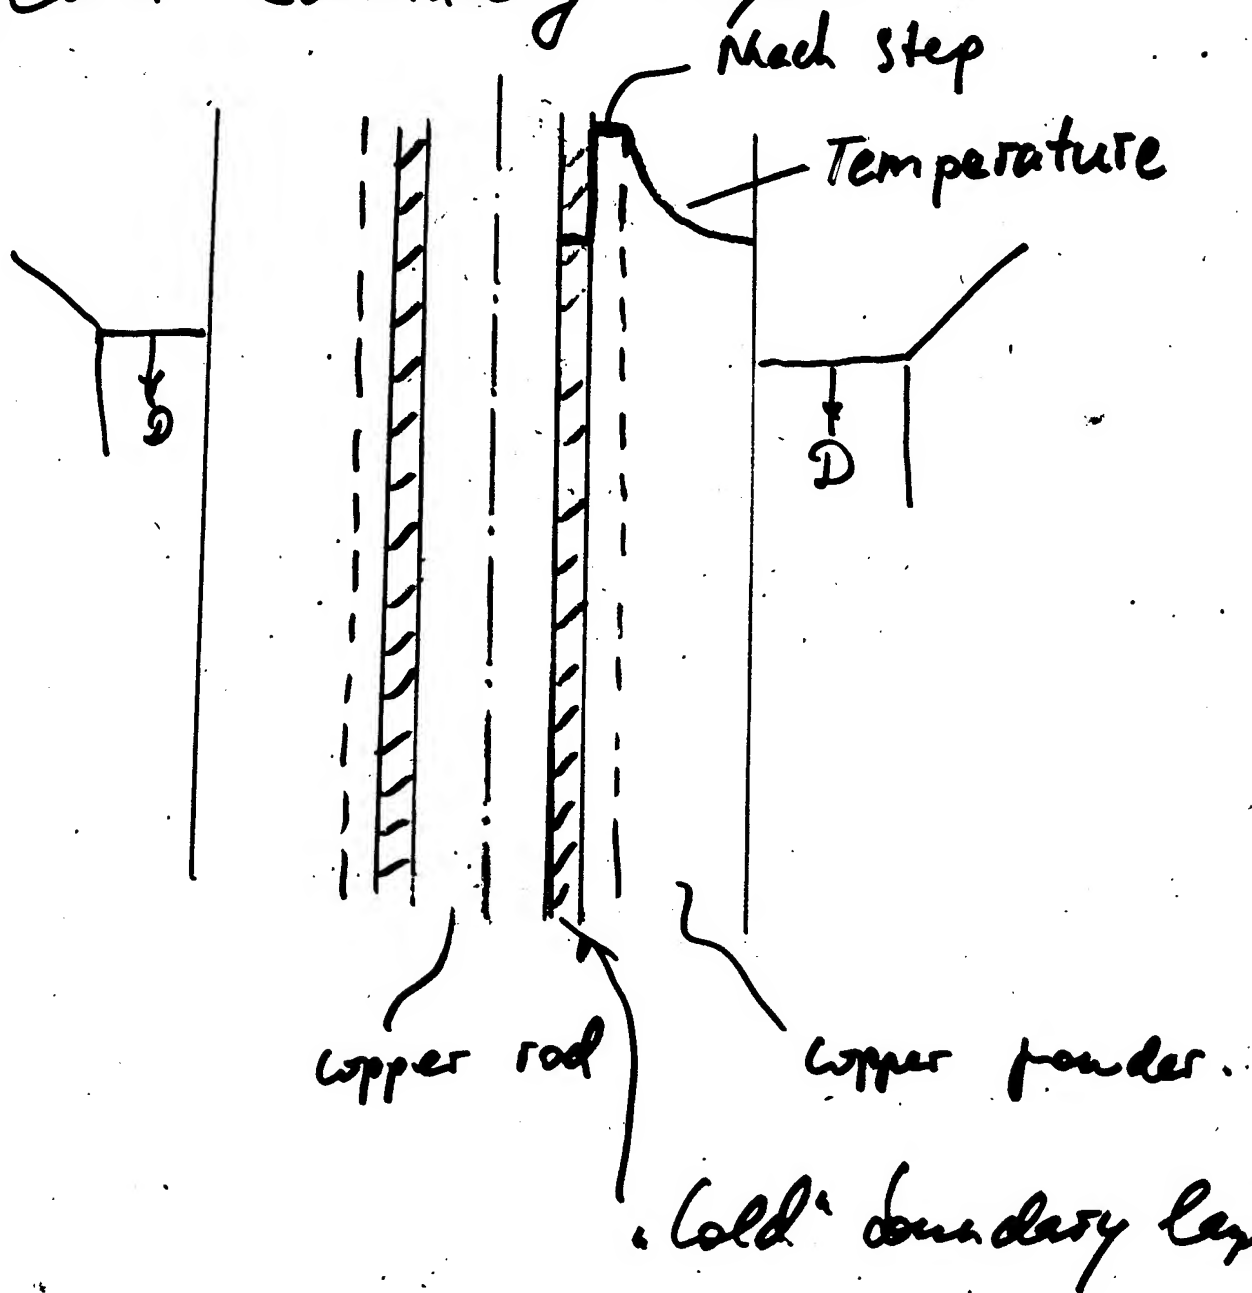 Mach step
Temperature
D
D
copper rod
copper powder.
"Cold" boundary lay